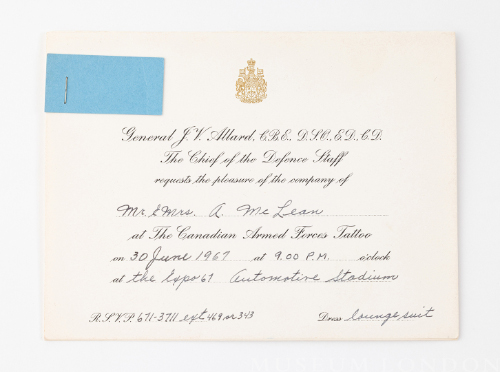 General J.V. Allard, C.B.E., D.S.O., E.D., C.D.
The Chief of the Defence Staff
requests the pleasure of the company of
Mr. & Mrs. A. McLean
at The Canadian Armed Forces Tattoo
on 30 June 1967 at 9.00 P.M. o'clock
at the Expo 67 Automotive Stadium
R.S.V.P. 671-3711 ext 469 or 343 Dress lounge suit